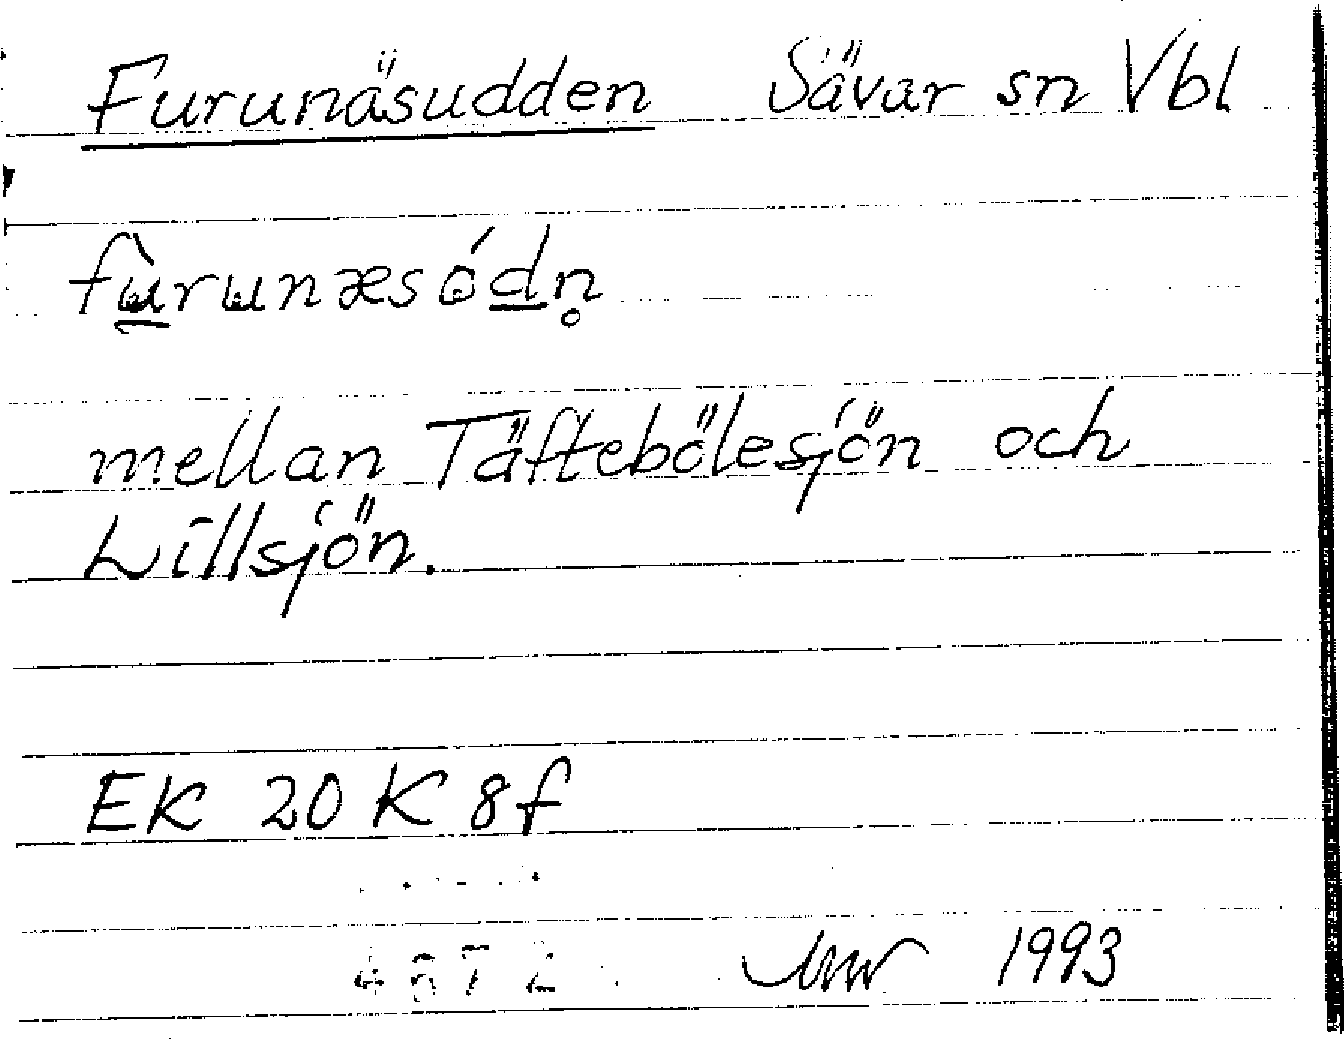 Furunäsudden Sävar sn Vbl
fùrunæsódn̥
mellan Täftebölesjön och
Lillsjön.
EK 20 K 8f
1993